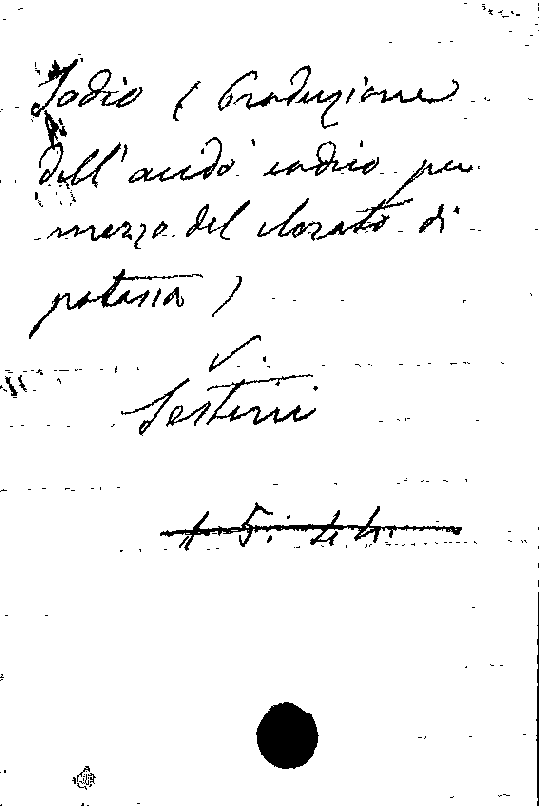 Iodio (Produzione
dell'acido iodico per
mezzo del clorato di
potassa)
V.
Sestini
1. 5. 44.